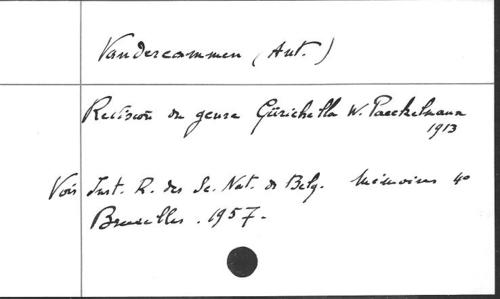 Vandercammen (Ant.)
Revision du genre Gürichella W. Paeckelmann
1913
Voir Inst. R. des Sc. Nat. de Belg. Mémoires 4°
Bruxelles. 1957.-